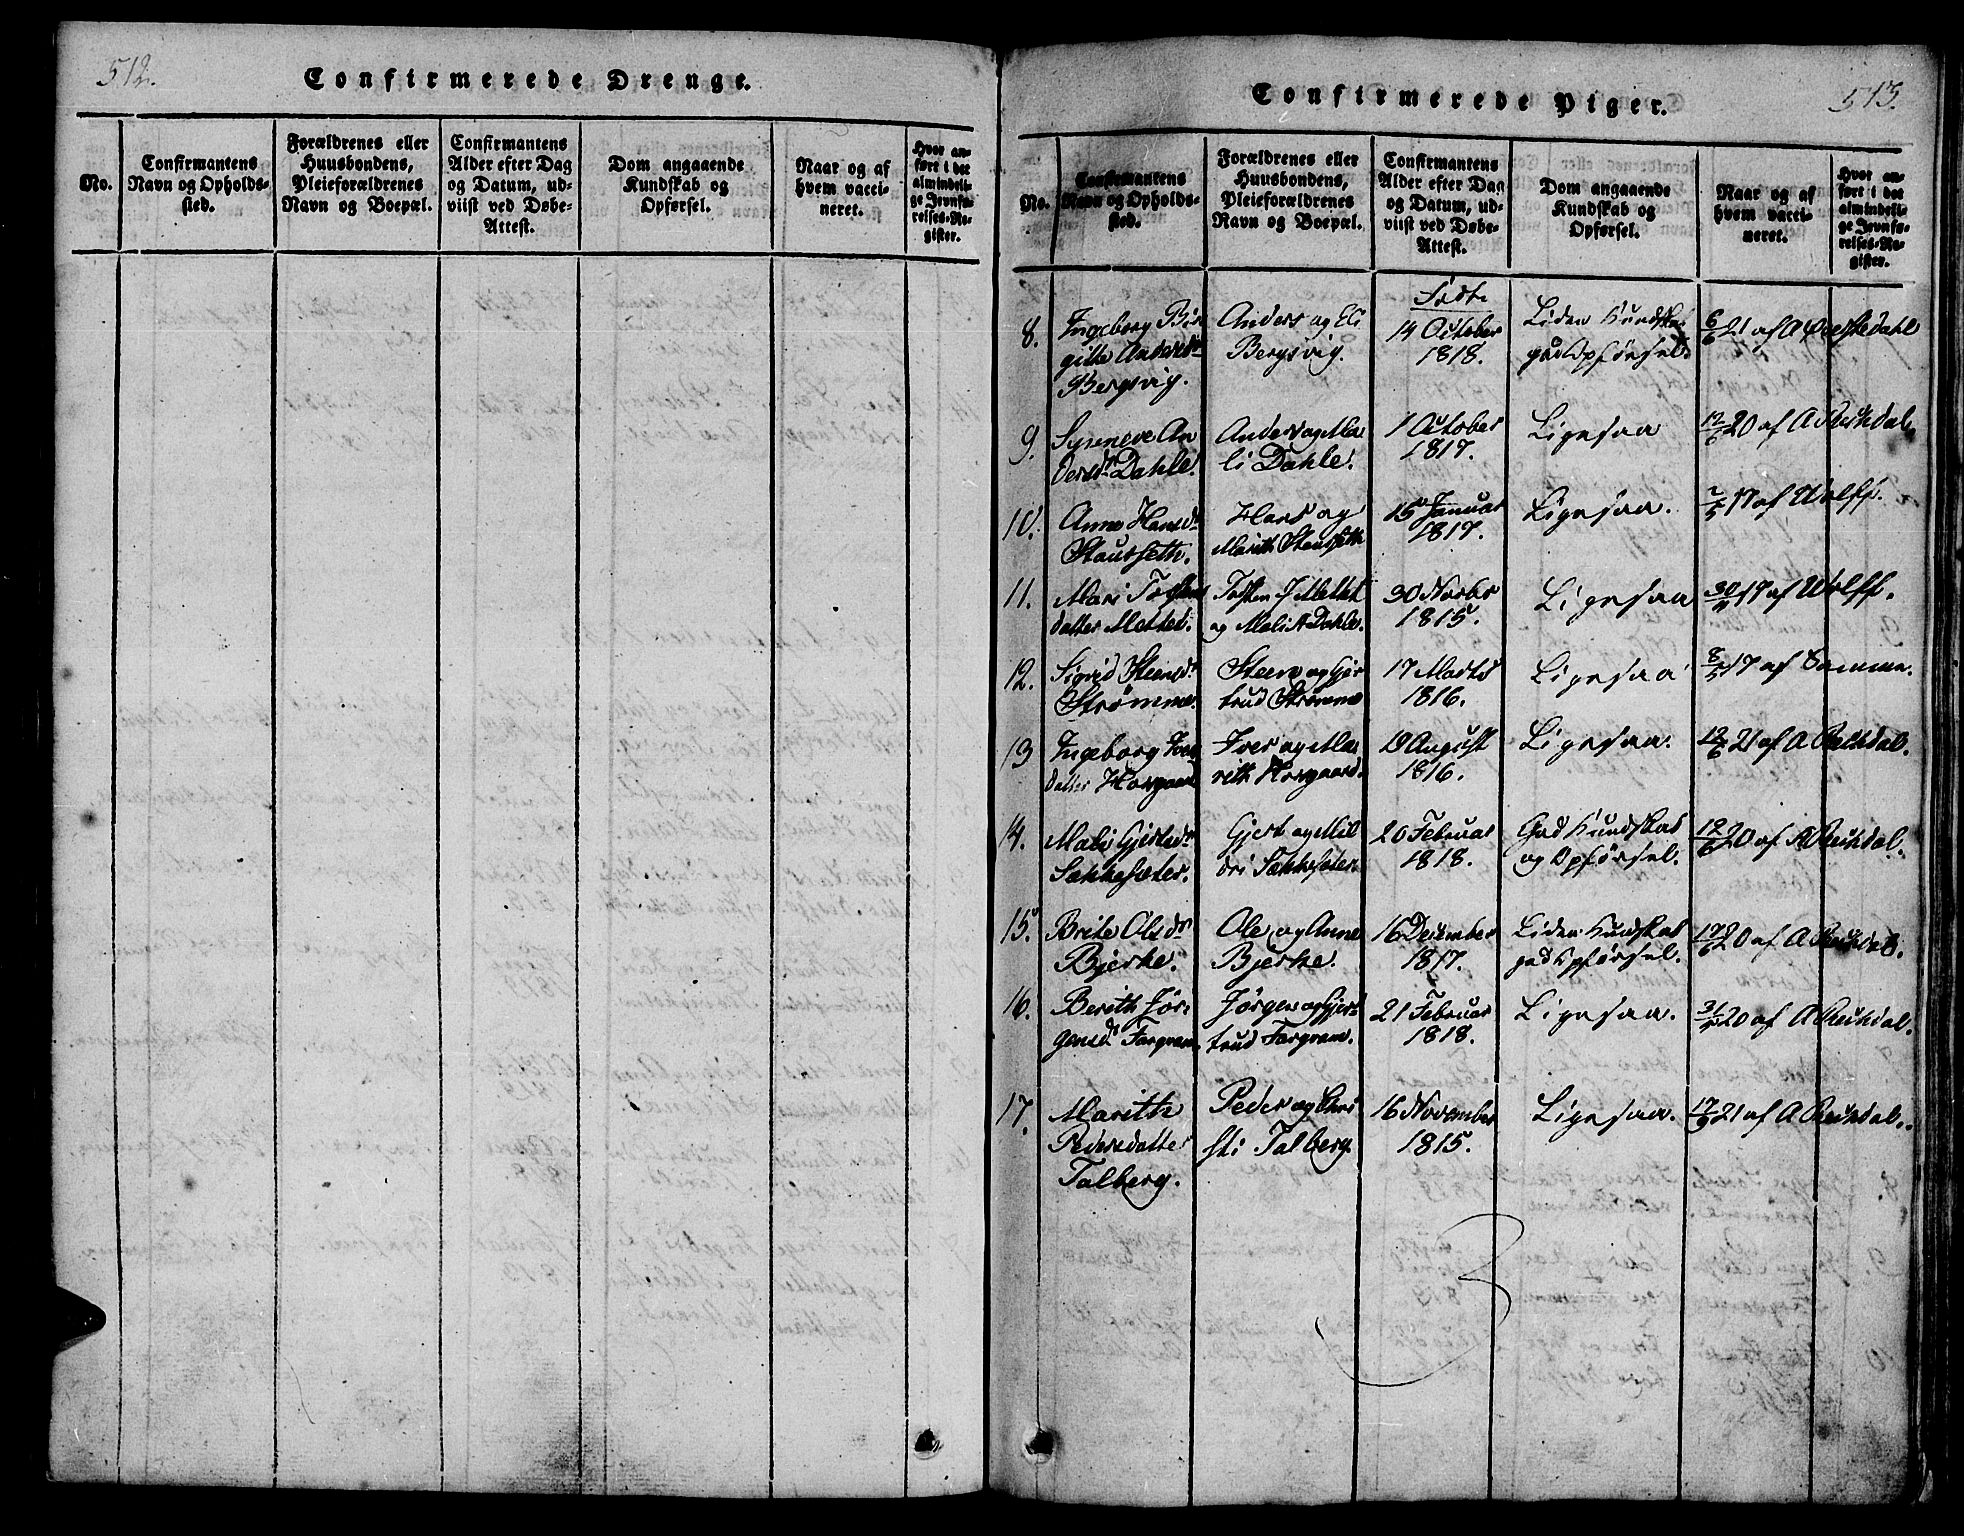 512.
Confirmerede Drenge.
No.
Confirmantens
Navn og Opholds-
sted.
Forældrenes eller
Huusbondens,
Pleieforældrenes
Navn og Boepæl.
Confirmantens
Alder efter Dag
og Datum, ud-
viist ved Døbe-
Attest.
Dom angaaende
Kundskab og
Opførsel.
Naar og af
hvem vacci-
neret.
Hvor an-
ført i det
almindeli-
ge Jevnfø-
relses-Re-
gister.
513.
Confirmerede Piger.
No.
Confirmantens
Navn og Opholds-
sted.
Forældrenes eller
Huusbondens,
Pleieforældrenes
Navn og Boepæl.
Confirmantens
Alder efter Dag
og Datum, ud-
viist ved Døbe-
Attest.
Dom angaaende
Kundskab og
Opførsel.
Naar og af
hvem vacci-
neret.
Hvor an-
ført i det
almindeli-
ge Jevnfø-
relses-Re-
gister.
8.
Ingeborg Bir
gitte Andersdr
Bergsvig.
Anders og Eli
Bergsvig.
Født
14 October
1818.
Liden Kundskab
god Opførsel.
6/6 21 af A
9.
Synneve An
dersdr Dahle.
Anders og Ma
li Dahle.
1 October
1817.
Ligesaa
12/6 20 af A
10.
Anne Hansdr
Staurseth.
Hans og
Marith Staurseth
15 Januar
1817.
Ligesaa.
17 af Wolff.
11.
Mari Tosten
datter Mettet.
Tosten J Mettet
og Mali A Dahle.
30 Novbr
1815.
Ligesaa
17 af Wolff.
12.
Sigrid Steensdr
Strømme.
Steen og Gjer
trud Strømme
17 Marts
1816.
Ligesaa
8/5 17 af Samme.
13
Ingeborg Ivers
datter Horgaard
Iver og Ma
rith Horgaard.
19 August
1816.
Ligesaa.
21 af A
14.
Mali Gjertsdr
Sækkesæter.
Gjert og Mil
dri Sækkesæter
20 Februar
1818.
God Kundskab
og Opførsel.
12/6 20 af A
15.
Brite Olsdr
Bjerke.
Ole og Anne
Bjerke.
16 December
1817.
Liden Kundskab
god Opførsel.
17/6 20 af A
16.
Berith Jør
gensdr Fargram.
Jørgen og Gjer
trud Fargram.
21 Februar
1818.
Ligesaa.
31/5 20 af A
17.
Marith
Pedersdatter
Talberg.
Peder og Chri
sti Talberg.
16 November
1815.
Ligesaa.
21 af A